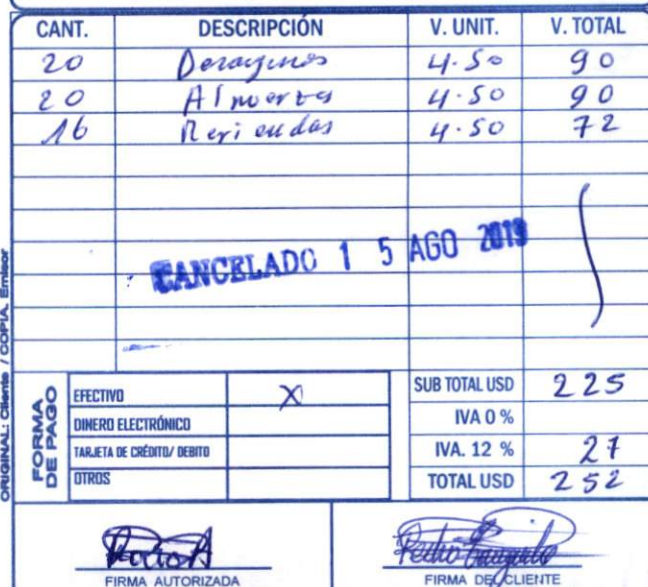 CANT. DESCRIPCIÓN V. UNIT. V. TOTAL
20 Desayunos 4.50 90
20 Almuerzos 4.50 90
16 Meriendas 4.50 72
CANCELADO 1 5 AGO 2019
ORIGINAL: Cliente / COPIA, Emisor
FORMA DE PAGO
EFECTIVO X
DINERO ELECTRÓNICO
TARJETA DE CRÉDITO/ DEBITO
OTROS
SUB TOTAL USD 225
IVA 0 %
IVA. 12 % 27
TOTAL USD 252
FIRMA AUTORIZADA
Pedro
FIRMA DEL CLIENTE